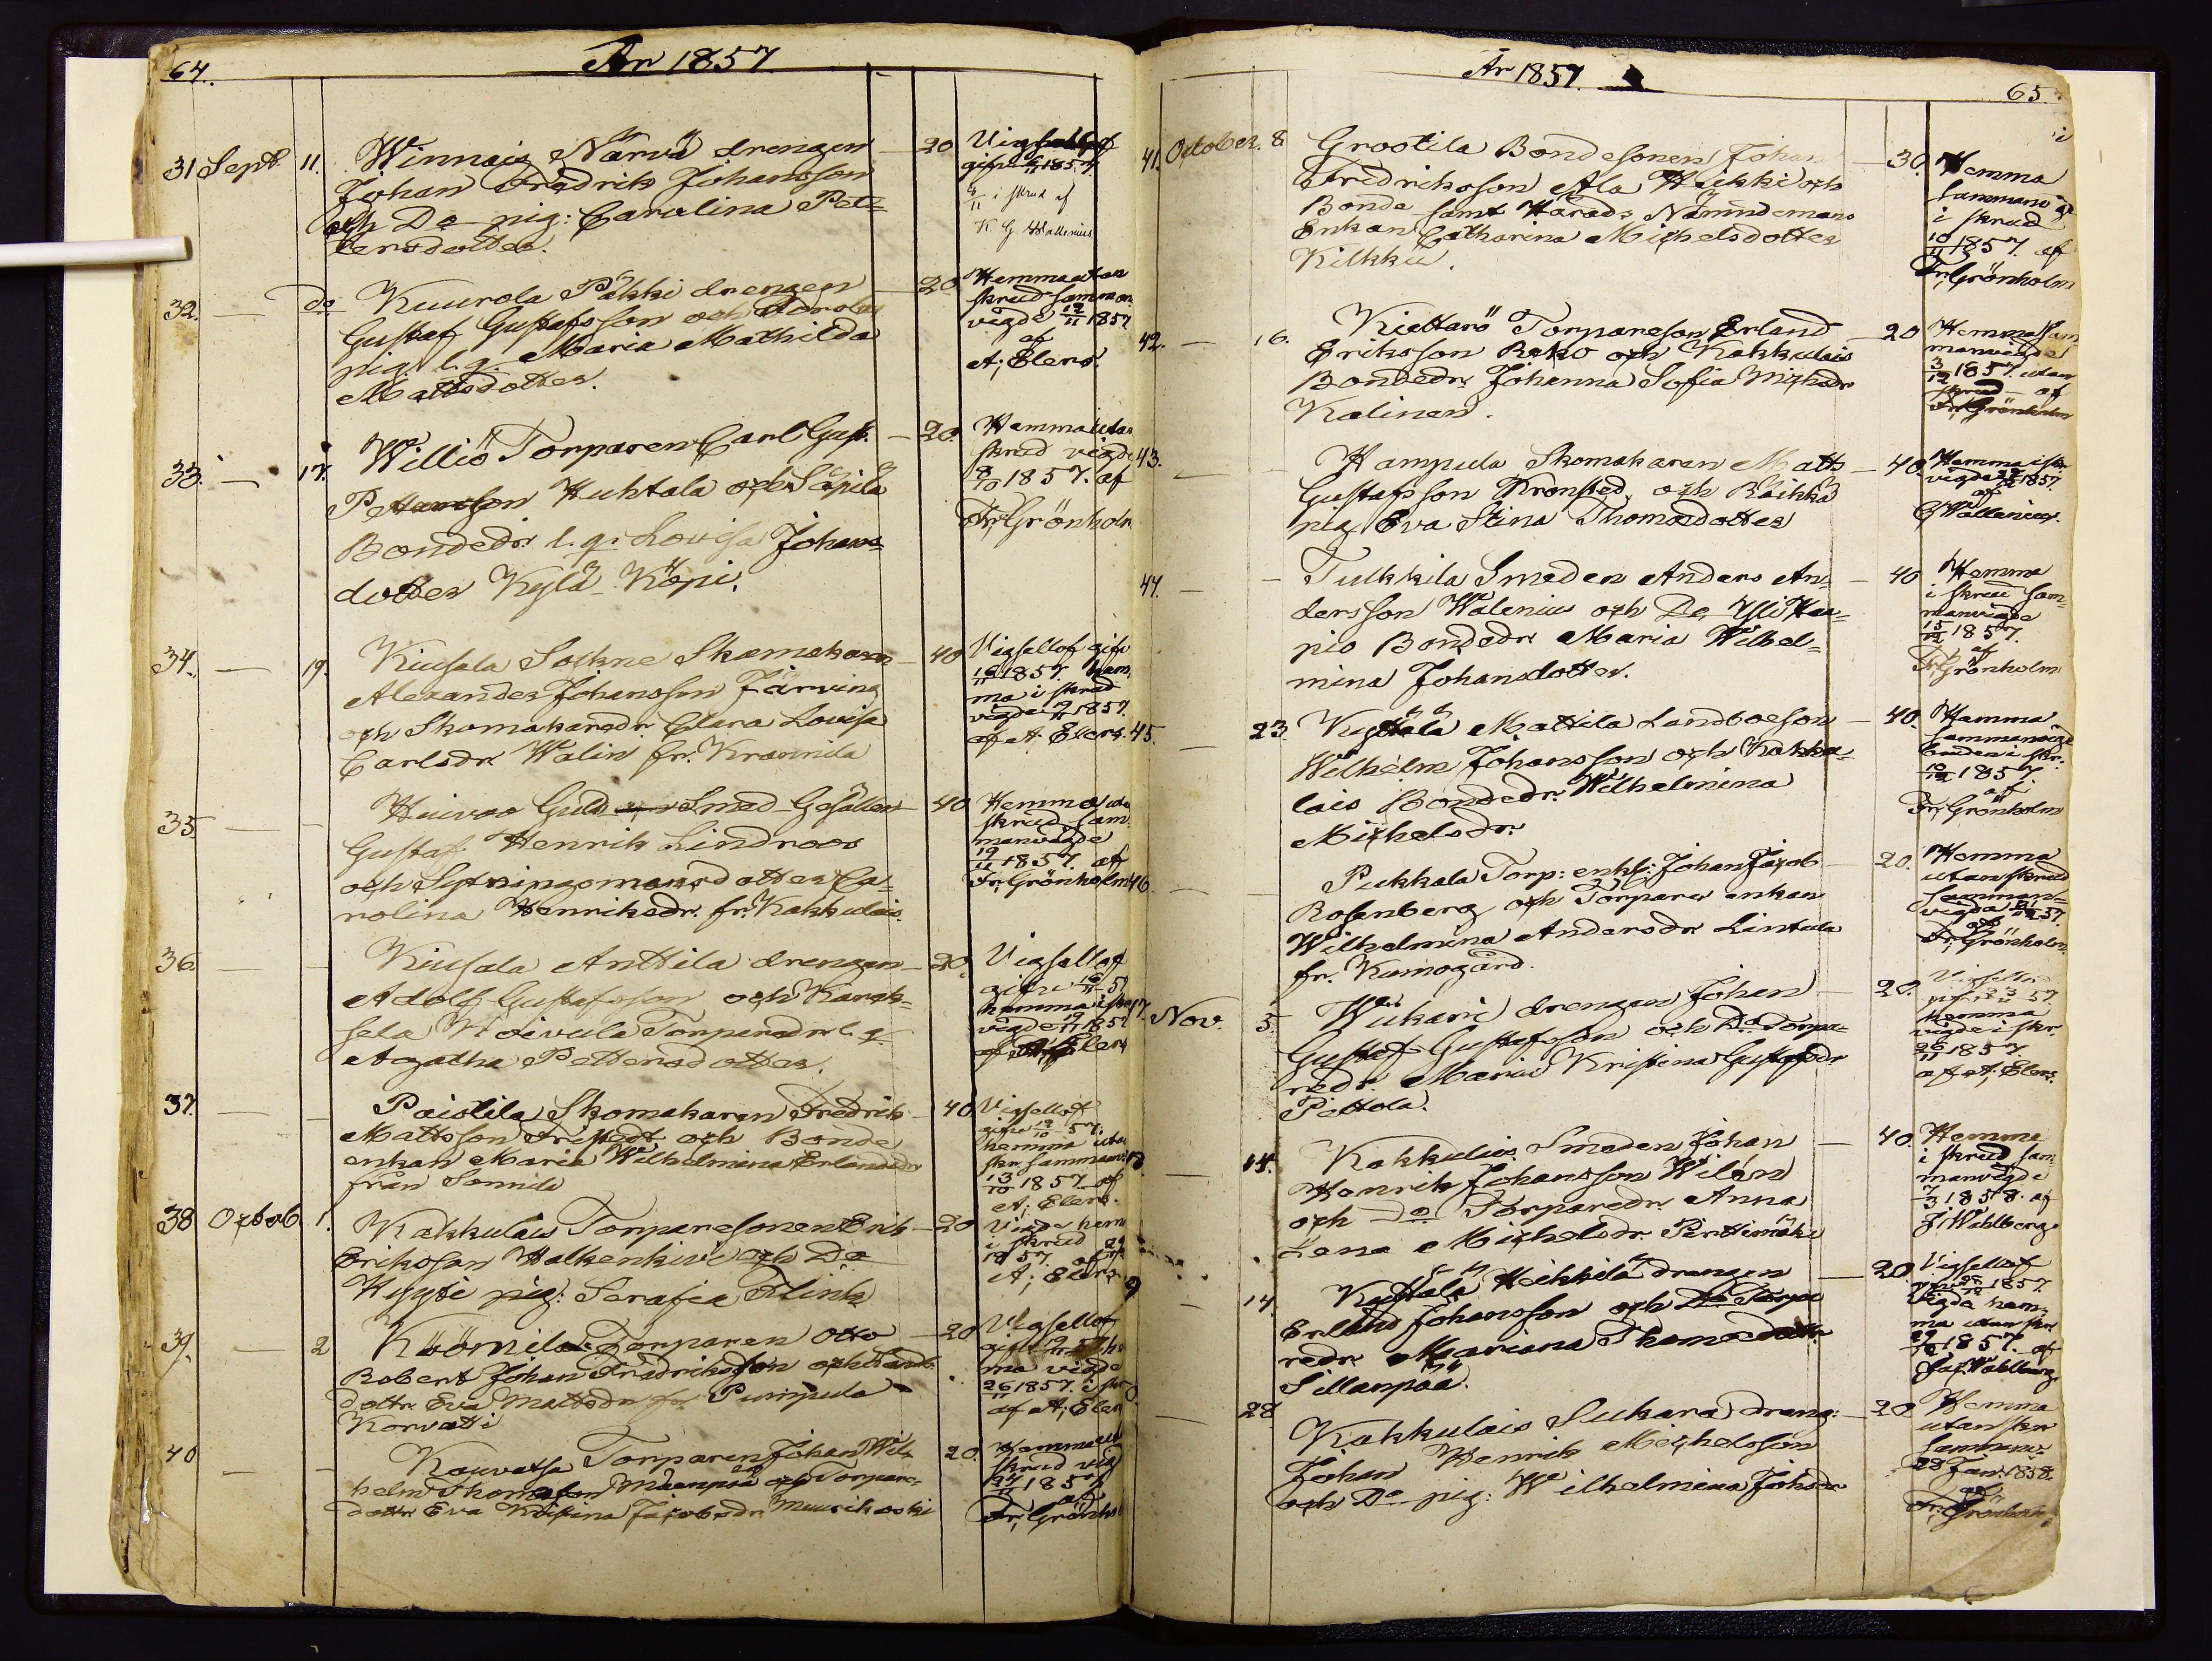 64.
År 1857.
31 Sept. 11. Winnais Närvä drengen
Johan Fredrik Johansson
och Do pig: Carolina Pet=
tersdotter.
20
Vigsellof
gifne 1857.
i skrud af
K G Wallenius
32. — do Kuurola Päkki drengen
Gustaf Gustafsson och
pig. l. q. Maria Mathilda
Mattsdotter.
20
Hemma utan
skrud samman
vigde 12/11 1857
af
A; Elers.
33. — 17. Williö Torparen Carl Gust.
Pettersson Huhtala och Säpilä
Bondedr. l. q. Lovisa Johans=
dotter Kylä-Köpi.
20.
Hemma utan
skrud vigde
8/10 1857. af
Fr; Grönholm
34. — 19. Kiusala Sockne Skomakaren
Alexander Johansson Järvina
och Skomakaredr. Clara Lovisa
Carlsdr. Walin fr. Kraunila
40
Vigsellof gifv.
1857. hem=
ma i skrud
vigde 1857.
af A. Elers.
35 — — Huivoo Guld Smed Gesällen
Gustaf Henrik Lindroos
och Sytningsmansdotter Ca=
rolina Henriksdr. fr. Kakkulais.
40
Hemma utan
skrud sam=
manvigde
19/11 1857. af
Fr; Grönholm
36 — — Kiusala Anttila drengen
Adolf Gustafsson och Karak=
sela Koivula Torparedr. l. q.
Agatha Pettersdotter.
20.
Vigsellof
gifne 57
hemma i skr.
vigde 19/11 1857
af Elers
37. — — Paistila Skomakaren Fredrik
Mattsson Fristedt och Bonde
enkan Maria Wilhelmina Erlandsdr
från Sonnila
40
Vigsellof
gifne 12/10 57.
hemma utan
skr. samman
13/10 1857 af
A; Elers.
38 Octob. 1. Kakkulais Torparesonen Erik
Eriksson Walkenkivi och Do
Hyyti pig: Serafia Flink
20
Vigde hem
i skrud
1857. af
A; Elers
39. — 2 Köömilä Torparen Otto
Robert Johan Fredriksson och
dottr. Eva Mattsdr fr. Pumpula
Korvatti
20
Vigsellof
gifne 57. he
ma vigde
26/11 1857. i skr
af A; Elers
40 — — Kouvatsa Torparen Johan Wil=
helm Thomasson Mäenpää och Torpare=
dottr Eva Kristina Jacobsdr. Muurikoski
20.
Hemma utan
skrud vig
24/11 1857
af
Fr; Grönho
År 1857.
65.
41. October. 8 Grootila Bondesonen Johan
Fredriksson Ala Heikki och
Bonde samt Härads Nämndemans
Enkan Catharina Michelsdotter
Kilkku.
30.
Hemma
sammanvige
i skrud
10/11 1857. af
Fr; Grönholm
42. — 16. Kiettarö Torpareson Erland
Eriksson Rako och Kakkulais
Bondedr. Johanna Sofia Michsdr
Kalinen.
20
Hemma sam
manvigde
3/12 1857. utan
skrud af
Fr; Grönholm
43. — — Hampula Skomakaren Matts
Gustafsson Kronsted, och Räikkä
pig. Eva Stina Thomasdotter
40.
Hemma i skr.
vigde 1857.
af
G Wallenius.
44. — — Tulkkila Smeden Anders An=
dersson Walenius och Do Yli Hau=
pio Bondedr. Maria Wilhel=
mina Johansdotter.
40
Hemma
i skrud sam=
manvigde
15/12 1857.
af
Fr; Grönholm
45. — 23. Kyttälä Mattila Landboeson
Wilhelm Johansson och Kakku=
lais Bondedr. Wilhelmina
Michelsdr.
40.
Hemma
sammanvige
i skr.
10/12 1857.
af
Fr; Grönholm
46 — — Pukkala Torp: enkl: Johan Jacob
Rosenberg och Torpare enkan
Wilhelmina Andersdr Lintula
fr. Kumogård.
20.
Hemma
utan skrud
samman=
vigde 57.
af
Fr; Grönholm
47. Nov. 5. Wukari drengen Johan
Gustaf Gustafsson och Do Torpa=
redr. Maria Kristina Gustafsdr
Pietola.
20.
Vigsellof
57.
hemma
vigde i skr.
26/11 1857
af A; Elers.
— 14. Kakkulais Smeden Johan
Henrik Johansson Wilén
och Do Torparedr. Anna
Lena Michelsdr. Perttimäki
40.
Hemma
i skrud sam
manvigde
7/3 1858. af
J; Wahlberg
— 14 Kyttälä Heikkilä drengen
Erland Johansson och Do Torpa
redr. Mariana Thomasdotter
Sillanpää.
20.
Vigsellof
1857.
vigde hem=
ma utan skr
29/12 1857. af
Jac. Wahlberg
— 28 Kakkulais Sukara dreng:
Johan Henrik Michelsson
och Do pig: Wilhelmina Johsdr
20
Hemma
utan skr
samman.
28 Jan. 1858.
af
Fr; Grönholm